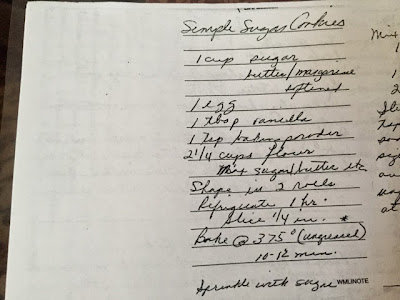 Simple Sugar Cookies
1 cup sugar
butter/margarine
softened
1 egg
1 tbsp vanilla
1 tsp baking powder
2 1/4 cups flour
Mix sugar/butter etc
Shape in 2 rolls
Refrigerate 1 hr.
Slice 1/4 in. *
Bake @ 375° (ungreased)
10-12 min.
Sprinkle with sugar
WMLINOTE
Mix
1
1
2
at